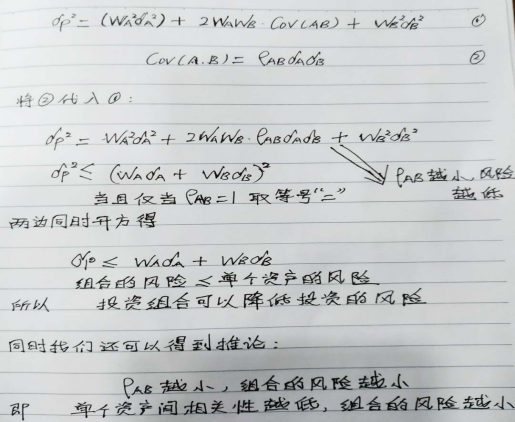 σp²= (WA²σA²) + 2WAWB·COV(AB) + WB²σB² ①
COV(A.B)= ρABσAσB ②
将②代入①:
σp²= WA²σA² + 2WAWB·ρABσAσB + WB²σB²
σp²≤ (WAσA + WBσB)²
ρAB越小,风险
越低
当且仅当 ρAB=1 取等号"="
两边同时开方得
σp ≤ WAσA + WBσB
组合的风险 ≤ 单个资产的风险
所以 投资组合可以降低投资的风险
同时我们还可以得到推论:
ρAB越小,组合的风险越小
即 单个资产间相关性越低,组合的风险越小